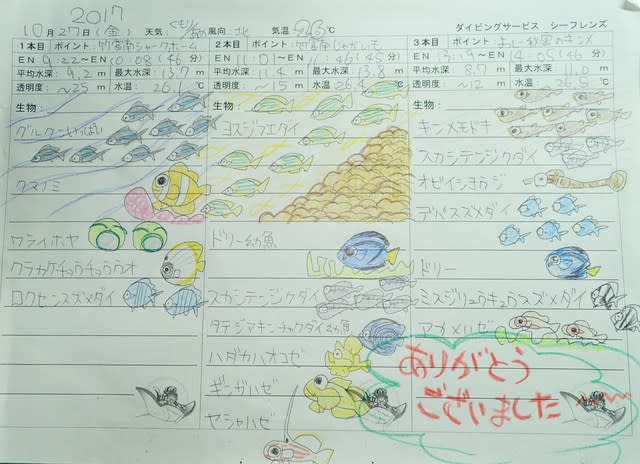 2017
10月27日(金) 天気: くもり/ 風向: 北 気温 26℃ ダイビングサービス シーフレンズ
1本目 ポイント: 竹富南シャークホーム
EN 9:22〜EN 10:08(46分)
平均水深: 9.2m 最大水深 13.7m
透明度: 〜25m 水温: 26.1℃
生物:
グルクンいっぱい
クマノミ
ワライホヤ
クラカケチョウチョウウオ
ロクセンスズメダイ
2本目: ポイント: 竹富南じゃがいも
EN 11:01〜EN 11:46(45分)
平均水深: 最大水深 13.8m
透明度: 〜15m 水温: 26.4℃
生物:
ヨスジフエダイ
ドリー幼魚
スカシテンジクダイ
タテジマキンチャクダイ幼魚
ハダカハオコゼ
ギンガハゼ
ヤシャハゼ
3本目 ポイント:
平均水深: 8.7m 最大水深 11.0m
透明度: 〜12m 水温: 26.5℃
生物:
キンメモドキ
スカシテンジクダイ
オビイシヨウジ
デバスズメダイ
ドリー
ミスジリュウキュウスズメダイ
アカメハゼ
ありがとう
ございました